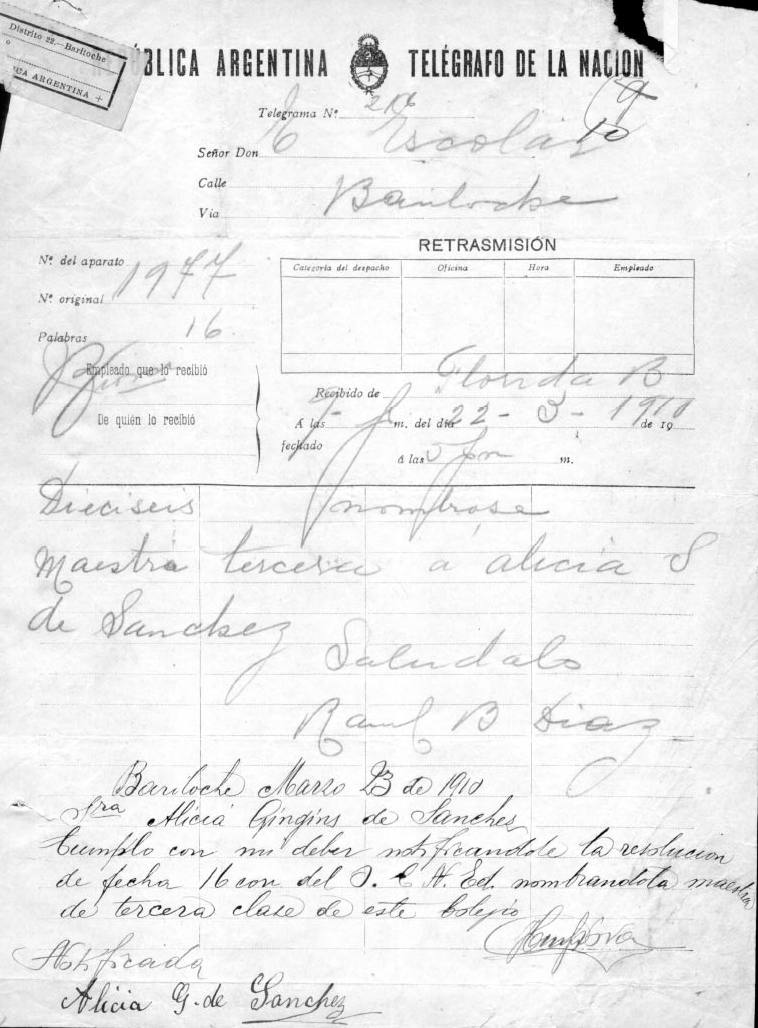 Distrito 22.—Bariloche
CA ARGENTINA +
REPÚBLICA ARGENTINA TELÉGRAFO DE LA NACION
Telegrama Nº 206
10
Señor Don E Escolar
Calle
Via Bariloche
RETRASMISIÓN
Nº del aparato 1977
Categoría del despacho Oficina Hora Empleado
Nº original
Palabras 16
Empleado que lo recibió
De quién lo recibió
Recibido de Florida B
Á las m. del día 22 - 3 - 1910 de 19
fechado á las 5 pm m.
Dieciseis nombrose
Maestra tercera a alicia S
de Sanchez
Saludalo
Raul B Diaz
Bariloche Marzo 23 de 1910
Sra Alicia Gingins de Sanches
Cumplo con mi deber notificandole la resolucion
de fecha 16 con del S. C N. Ed. nombrandola maestra
de tercera clase de este Colegio
Notificada
Alicia G. de Sanchez